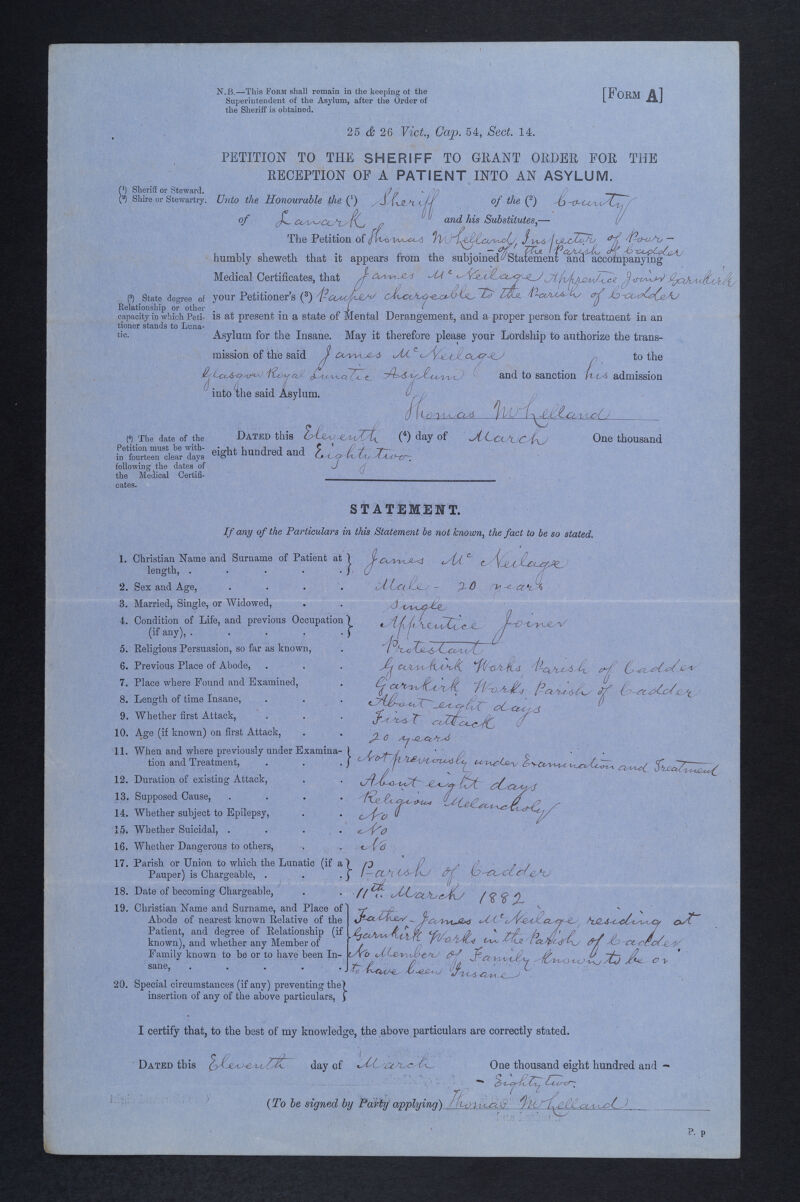 N.B.—This FORM shall remain in the keeping of the
Superintendent of the Asylum, after the Order of
the Sheriff is obtained.
[FORM A]
25 & 26 Vict., Cap. 54, Sect. 14.
PETITION TO THE SHERIFF TO GRANT ORDER FOR THE
RECEPTION OF A PATIENT INTO AN ASYLUM.
(¹) Sheriff or Steward.
(²) Shire or Stewartry.
Unto the Honourable the (¹) Sheriff of the (²) County
of Lanark and his Substitutes,—
The Petition of Thomas McLelland, Inspector of Poor -
- of the Parish of Cadder
humbly sheweth that it appears from the subjoined Statement and accompanying
Medical Certificates, that James McNeilage Apprentice Joiner Garnkirk
(³) State degree of
Relationship or other
capacity in which Peti-
tioner stands to Luna-
tic.
your Petitioner's (³) Pauper chargeable to the Parish of Cadder
is at present in a state of Mental Derangement, and a proper person for treatment in an
Asylum for the Insane. May it therefore please your Lordship to authorize the trans-
mission of the said James McNeilage to the
Glasgow Royal Lunatic Asylum and to sanction his admission
into the said Asylum.
Thomas McLelland
(⁴) The date of the
Petition must be with-
in fourteen clear days
following the dates of
the Medical Certifi-
cates.
DATED this Eleventh (⁴) day of March One thousand
eight hundred and Eighty two.
STATEMENT.
If any of the Particulars in this Statement be not known, the fact to be so stated.
1. Christian Name and Surname of Patient at
length, . . . . . James McNeilage
2. Sex and Age, . . . . Male - 20 years
3. Married, Single, or Widowed, . . Single
4. Condition of Life, and previous Occupation
(if any), . . . . . Apprentice Joiner
5. Religious Persuasion, so far as known, . Protestant
6. Previous Place of Abode, . . . Garnkirk Works Parish of Cadder
7. Place where Found and Examined, . Garnkirk Works Parish of Cadder
8. Length of time Insane, . . . About eight days
9. Whether first Attack, . . . First attack
10. Age (if known) on first Attack, . . 20 years
11. When and where previously under Examina-
tion and Treatment, . . . Not previously under Examination and Treatment
12. Duration of existing Attack, . . About eight days
13. Supposed Cause, . . . . Religious Melancholy
14. Whether subject to Epilepsy, . . No
15. Whether Suicidal, . . . . No
16. Whether Dangerous to others, . . No
17. Parish or Union to which the Lunatic (if a
Pauper) is Chargeable, . . . Parish of Cadder
18. Date of becoming Chargeable, . . 11th. March 1882
19. Christian Name and Surname, and Place of
Abode of nearest known Relative of the
Patient, and degree of Relationship (if
known), and whether any Member of
Family known to be or to have been In-
sane, . . . . .
Father - James McNeilage, residing at
Garnkirk Works in the Parish of Cadder
No Member of Family known to be or
to have been Insane
20. Special circumstances (if any) preventing the
insertion of any of the above particulars,
I certify that, to the best of my knowledge, the above particulars are correctly stated.
DATED this Eleventh day of March One thousand eight hundred and -
- Eighty two.
(To be signed by Party applying) Thomas McLelland
P. p